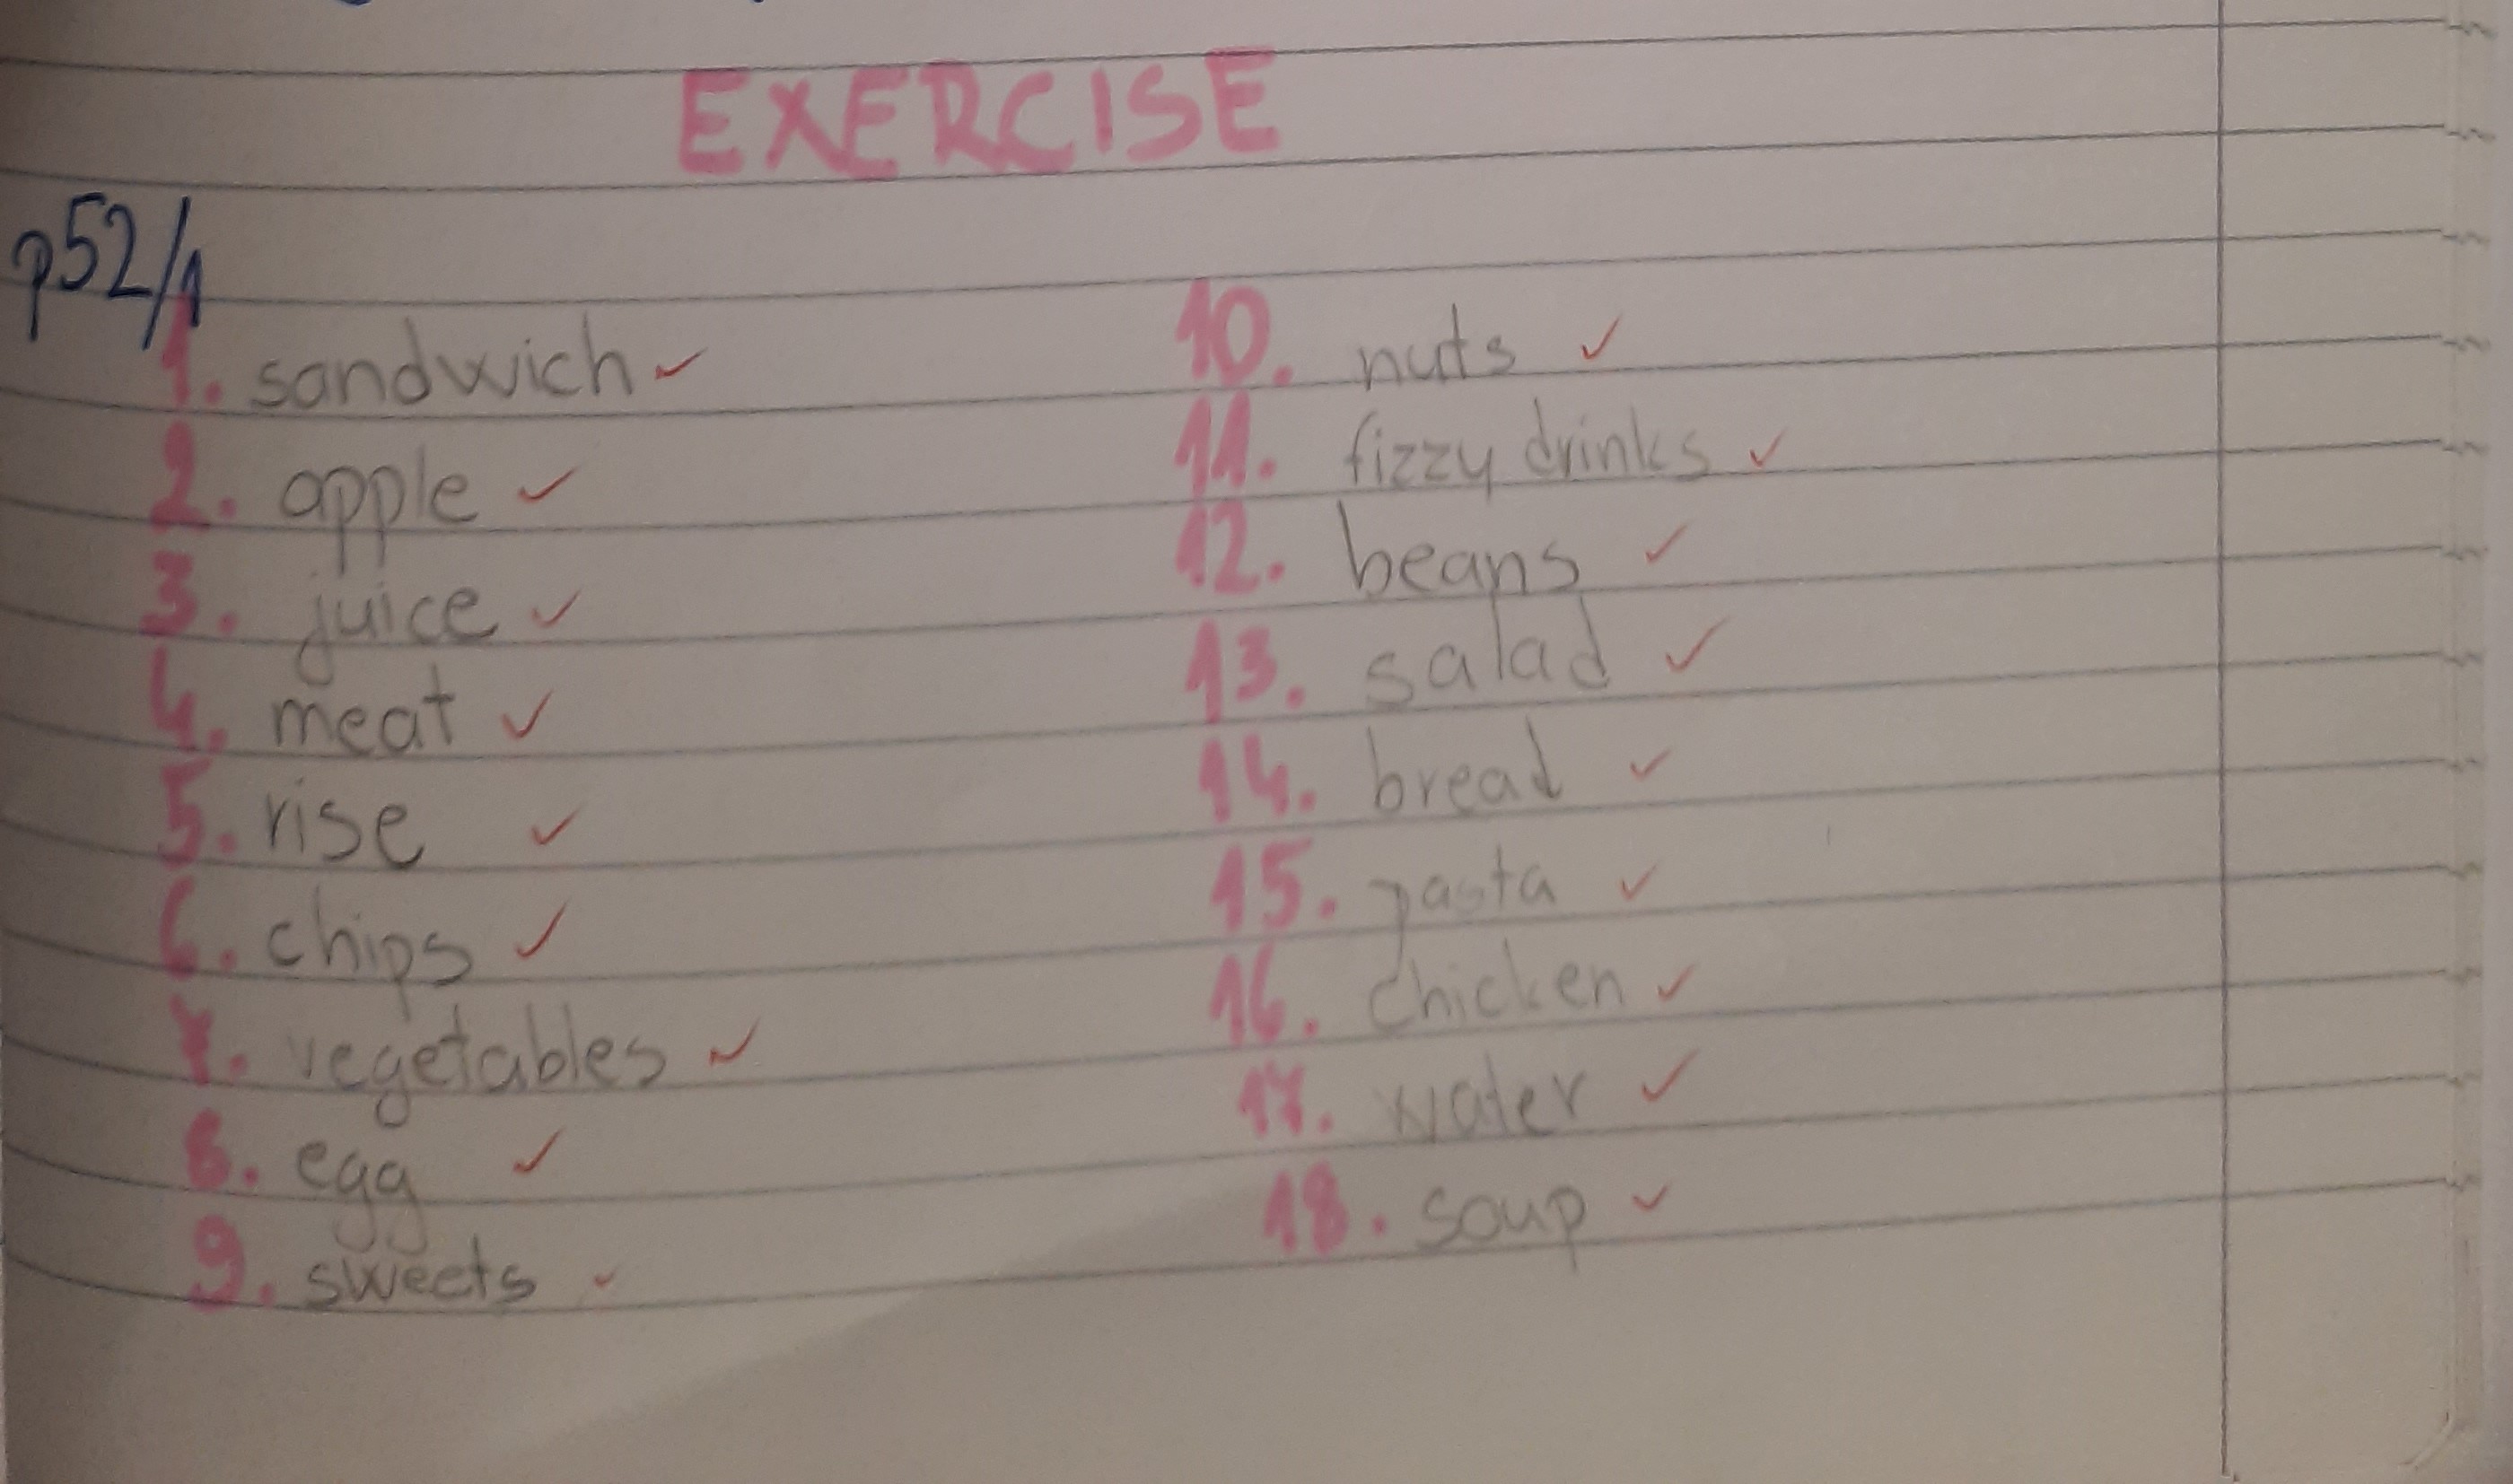 EXERCISE
p52/1
1. sandwich ✓
2. apple ✓
3. juice ✓
4. meat ✓
5. rise ✓
6. chips ✓
7. vegetables ✓
8. egg ✓
9. sweets ✓
10. nuts ✓
11. fizzy drinks ✓
12. beans ✓
13. salad ✓
14. bread ✓
15. pasta ✓
16. chicken ✓
17. water ✓
18. soup ✓